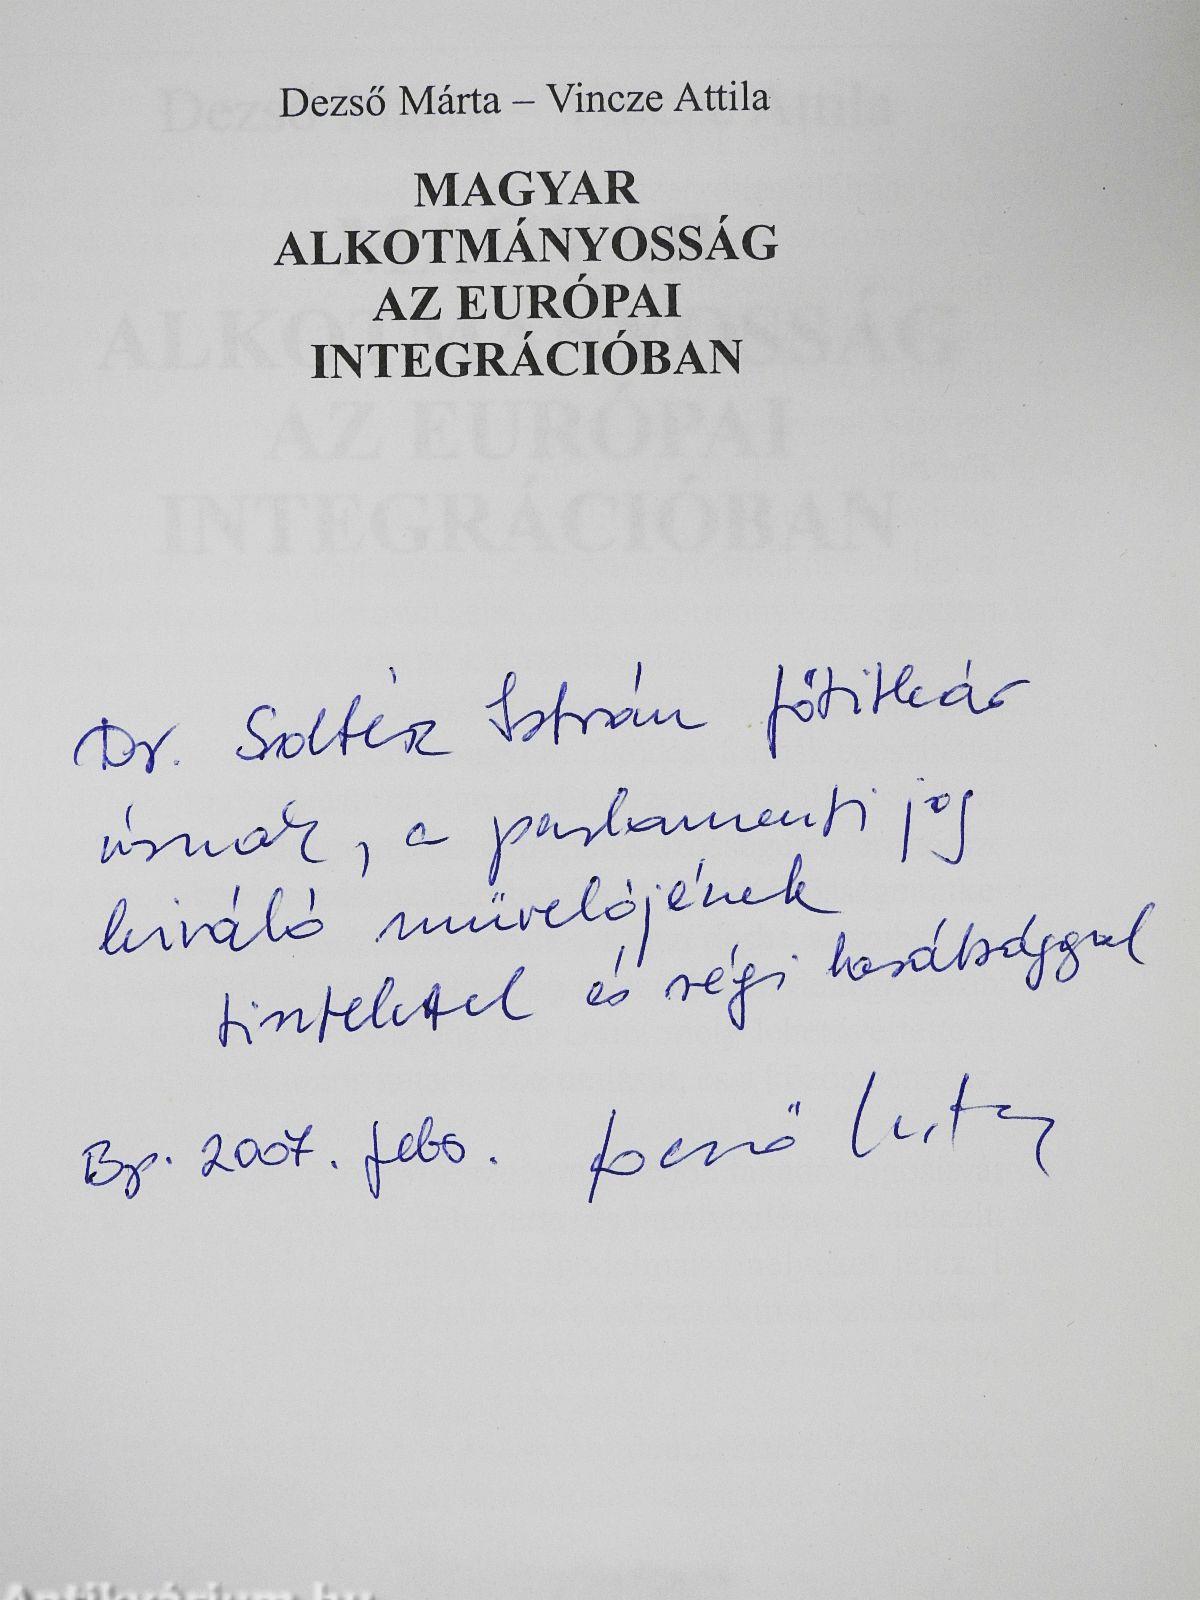 Dezső Márta – Vincze Attila
MAGYAR
ALKOTMÁNYOSSÁG
AZ EURÓPAI
INTEGRÁCIÓBAN
Dr. Soltész István főtitkár
úrnak, a parlamenti jog
kiváló művelőjének
tisztelettel és régi barátsággal
Bp. 2007. febr. Dezső Márta
Antikvárium.hu